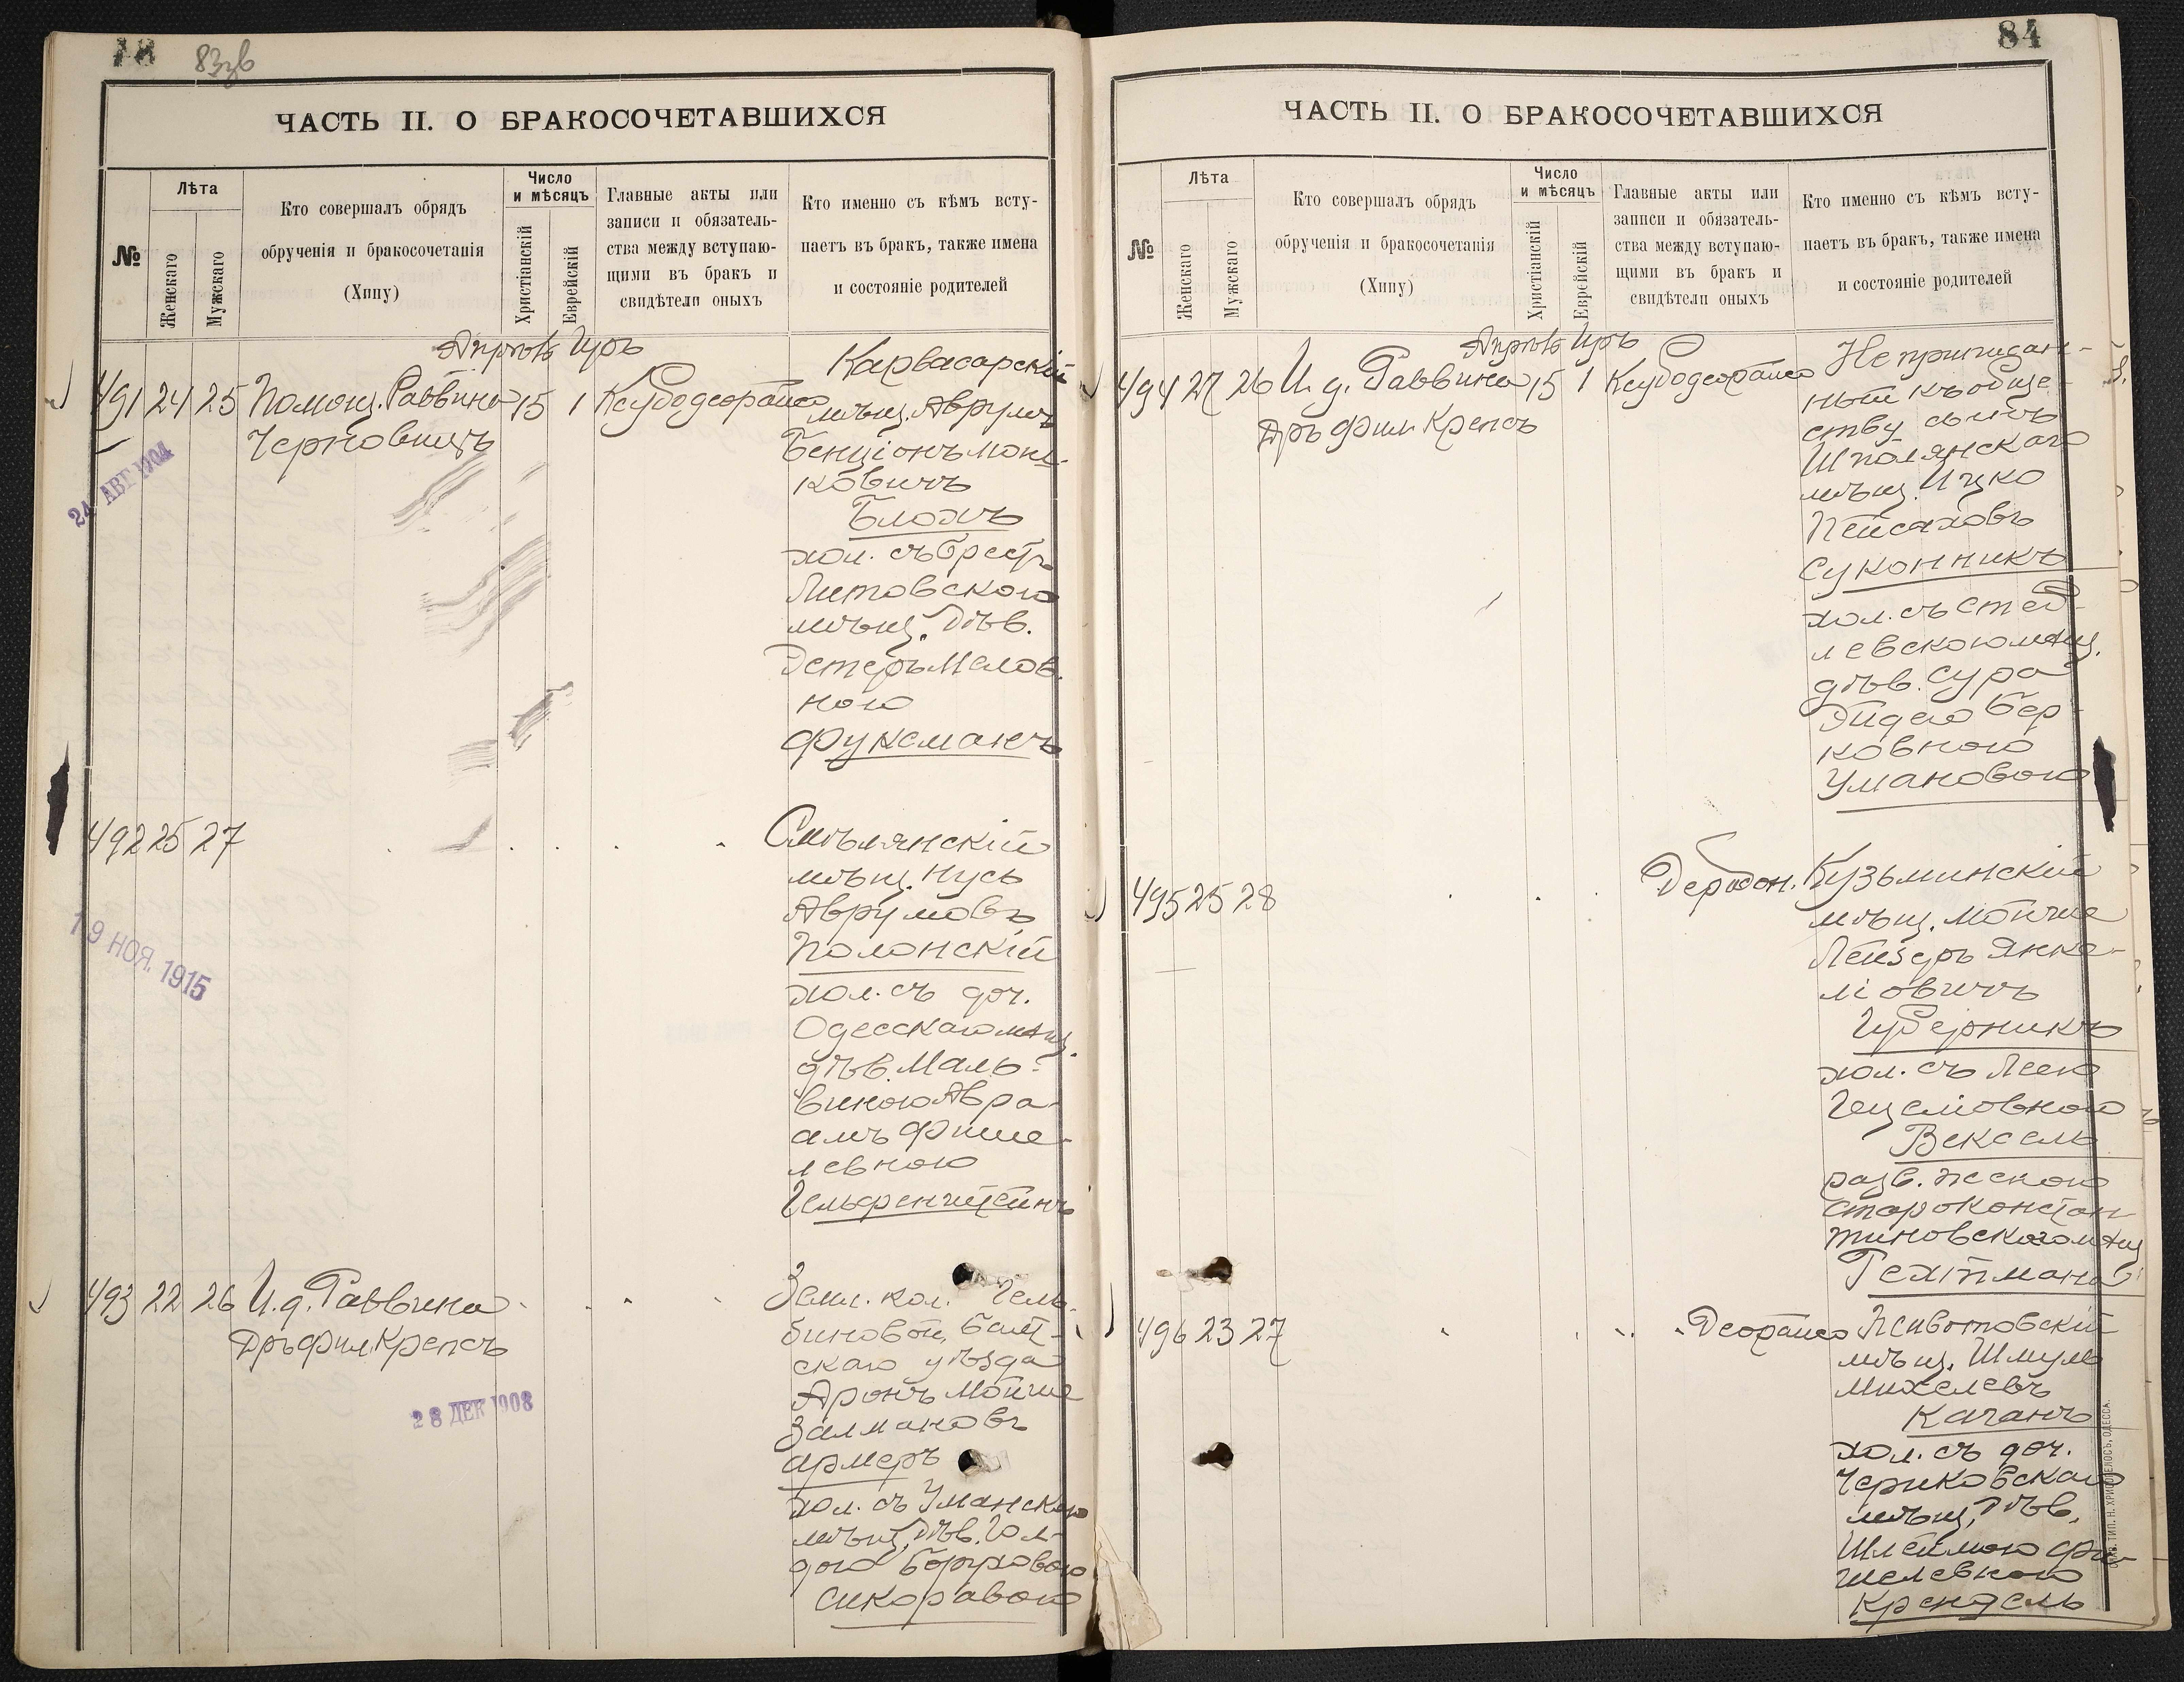 78 83зв
ЧАСТЬ II. О БРАКОСОЧЕТАВШИХСЯ
№
Лѣта
Женскаго
Мужскаго
Кто совершалъ обрядъ
обрученія и бракосочетанія
(Хипу)
Число
и мѣсяцъ
Христіанскій
Еврейскій
Главные акты или
записи и обязатель-
ства между вступаю-
щими въ бракъ и
свидѣтели оныхъ
Кто именно съ кѣмъ всту-
паетъ въ бракъ, также имена
и состояніе родителей
Апрѣль Іуръ
491 24 25 Помощ. Раввина 15 1 Ксубодеорайсо
Черновицъ
24 АВГ 1904
Карвасарскій
мѣщ. Аврумъ
Бенціонъ Мош-
ковичъ
Блохъ
хол. съ Брестъ
Литовскою
мѣщ. Дѣв.
Эстеръ Меляв.
ною
Фуксманъ
492 25 27
Смѣлянскій
мѣщ. Нусь
Аврумовъ
Полонскій
хол. съ доч.
Одесскаго мѣщ.
дѣв. Маль-
виною Авра-
амъ Фише-
левною
Гельфенштейнъ
19 НОЯ. 1915
493 22 26 И. д. Раввина
Дръ фил. Крепсъ
28 ДЕК 1908
Земл. кол. Гель-
биновой, Балт-
скаго уѣзда
Аронъ Мойше
Залмановъ
Армеръ
хол. съ Уманскою
мѣщ. Дѣв. Гол-
дою Боруховою
Сикоравою
84
ЧАСТЬ II. О БРАКОСОЧЕТАВШИХСЯ
№
Лѣта
Женскаго
Мужскаго
Кто совершалъ обрядъ
обрученія и бракосочетанія
(Хипу)
Число
и мѣсяцъ
Христіанскій
Еврейскій
Главные акты или
записи и обязатель-
ства между вступаю-
щими въ бракъ и
свидѣтели оныхъ
Кто именно съ кѣмъ всту-
паетъ въ бракъ, также имена
и состояніе родителей
Апрѣль Іуръ
494 27 26 И. д. Раввина 15 1 Ксубодеорайсо
Дръ фил. Крепсъ
Непричислен-
ный къ обще-
ству сынъ
Шполянскаго
мѣщ. Ицко
Пейсаховъ
Суконникъ
хол. съ Стеб-
левскою мѣщ.
дѣв. Сура
Эйдею Бер-
ковною
Умановою
495 25 28 Дерабон.
Кузьминскій
мѣщ. Мойше
Лейзеръ Янке-
ліовичъ
Губерникъ
хол. съ Леею
Гецеліовною
Вексель
разв. женою
Староконстан-
тиновскаго мѣщ.
Гехтмана
496 23 27 Деорайсо
Псивотовскій
мѣщ. Шмуль
Михелевъ
Каганъ
хол. съ доч.
Чериковскаго
мѣщ. Дѣв.
Шлеймою Фи-
шелевною
Крендель
СКЛ. ТИП. Н. ХРИСОГЕЛОСЪ, ОДЕССА.